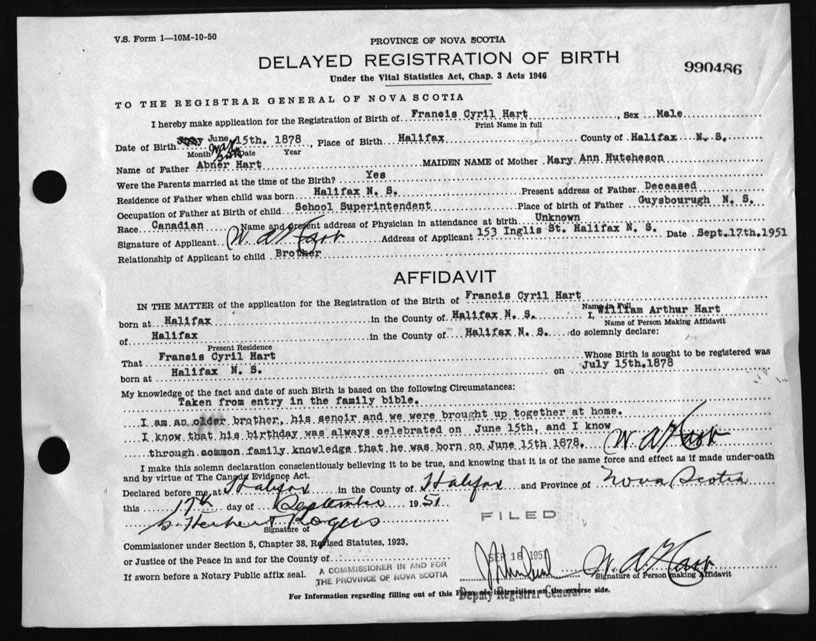 V.S. Form 1—10M-10-50
PROVINCE OF NOVA SCOTIA
DELAYED REGISTRATION OF BIRTH
990486
Under the Vital Statistics Act, Chap. 3 Acts 1946
TO THE REGISTRAR GENERAL OF NOVA SCOTIA
I hereby make application for the Registration of Birth of Francis Cyril Hart, Sex Male
Print Name in full
Date of Birth June 15th. 1878, Place of Birth Halifax County of Halifax N. S.
Month Date Year
Name of Father Abner Hart MAIDEN NAME of Mother Mary Ann Hutcheson
Were the Parents married at the time of the Birth? Yes
Residence of Father when child was born Halifax N. S. Present address of Father Deceased
Occupation of Father at Birth of child School Superintendent Place of birth of Father Guysbourugh N. S.
Race Canadian Name and present address of Physician in attendance at birth Unknown
Signature of Applicant W. A. Hart Address of Applicant 153 Inglis St. Halifax N. S. Date Sept.17th.1951
Relationship of Applicant to child Brother
AFFIDAVIT
IN THE MATTER of the application for the Registration of the Birth of Francis Cyril Hart
Name in Full
born at Halifax in the County of Halifax N. S. I, William Arthur Hart
Name of Person Making Affidavit
of Halifax in the County of Halifax N. S. do solemnly declare:
Present Residence
That Francis Cyril Hart Whose Birth is sought to be registered was
born at Halifax N. S. on July 15th.1878
My knowledge of the fact and date of such Birth is based on the following Circumstances:
Taken from entry in the family bible.
I am an older brother, his senoir and we were brought up together at home.
I know that his birthday was always celebrated on June 15th, and I know
through common family knowledge that he was born on June 15th 1878. W. A. Hart
I make this solemn declaration conscientiously believing it to be true, and knowing that it is of the same force and effect as if made under oath
and by virtue of The Canada Evidence Act.
Declared before me at Halifax in the County of Halifax and Province of Nova Scotia
this 17th day of September 1951
S. Herbert Rogers
FILED
Signature of
Commissioner under Section 5, Chapter 38, Revised Statutes, 1923,
or Justice of the Peace in and for the County of
SEP 18 1951
W. A. Hart
If sworn before a Notary Public affix seal.
A COMMISSIONER IN AND FOR
THE PROVINCE OF NOVA SCOTIA
Signature of Person making Affidavit
Deputy Registrar General
For Information regarding filling out of this Form see instructions on the reverse side.